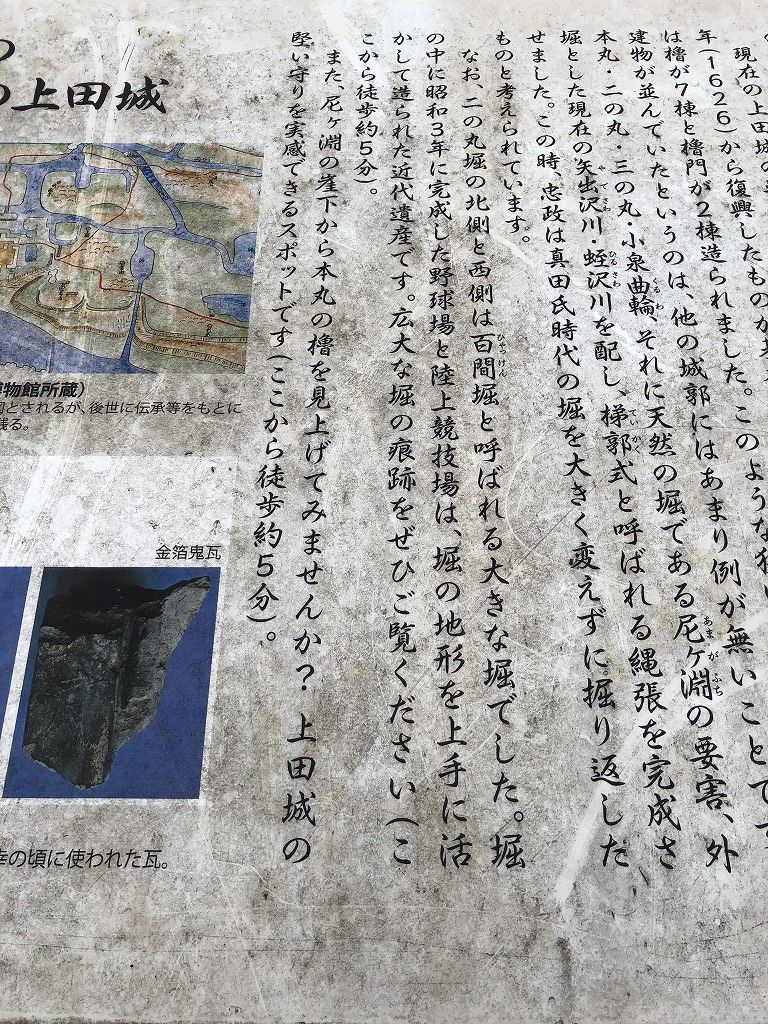 現在の上田城の
年(1626)から復興したものが
は櫓が7棟と櫓門が2棟造られました。このような
建物が並んでいたというのは、他の城郭にはあまり例が無いことです
本丸・二の丸・三の丸・小泉曲輪、それに天然の堀である尼ヶ淵の要害、外
堀とした現在の矢出沢川・蛭沢川を配し、梯郭式と呼ばれる縄張を完成さ
せました。この時、忠政は真田氏時代の堀を大きく変えずに掘り返した
ものと考えられています。
なお、二の丸堀の北側と西側は百間堀と呼ばれる大きな堀でした。堀
の中に昭和3年に完成した野球場と陸上競技場は、堀の地形を上手に活
かして造られた近代遺産です。広大な堀の痕跡をぜひご覧ください(こ
こから徒歩約5分)。
また、尼ヶ淵の崖下から本丸の櫓を見上げてみませんか? 上田城の
堅い守りを実感できるスポットです(ここから徒歩約5分)。
の上田城
博物館所蔵)
図とされるが、後世に伝承等をもとに
残る。
金箔鬼瓦
幸の頃に使われた瓦。